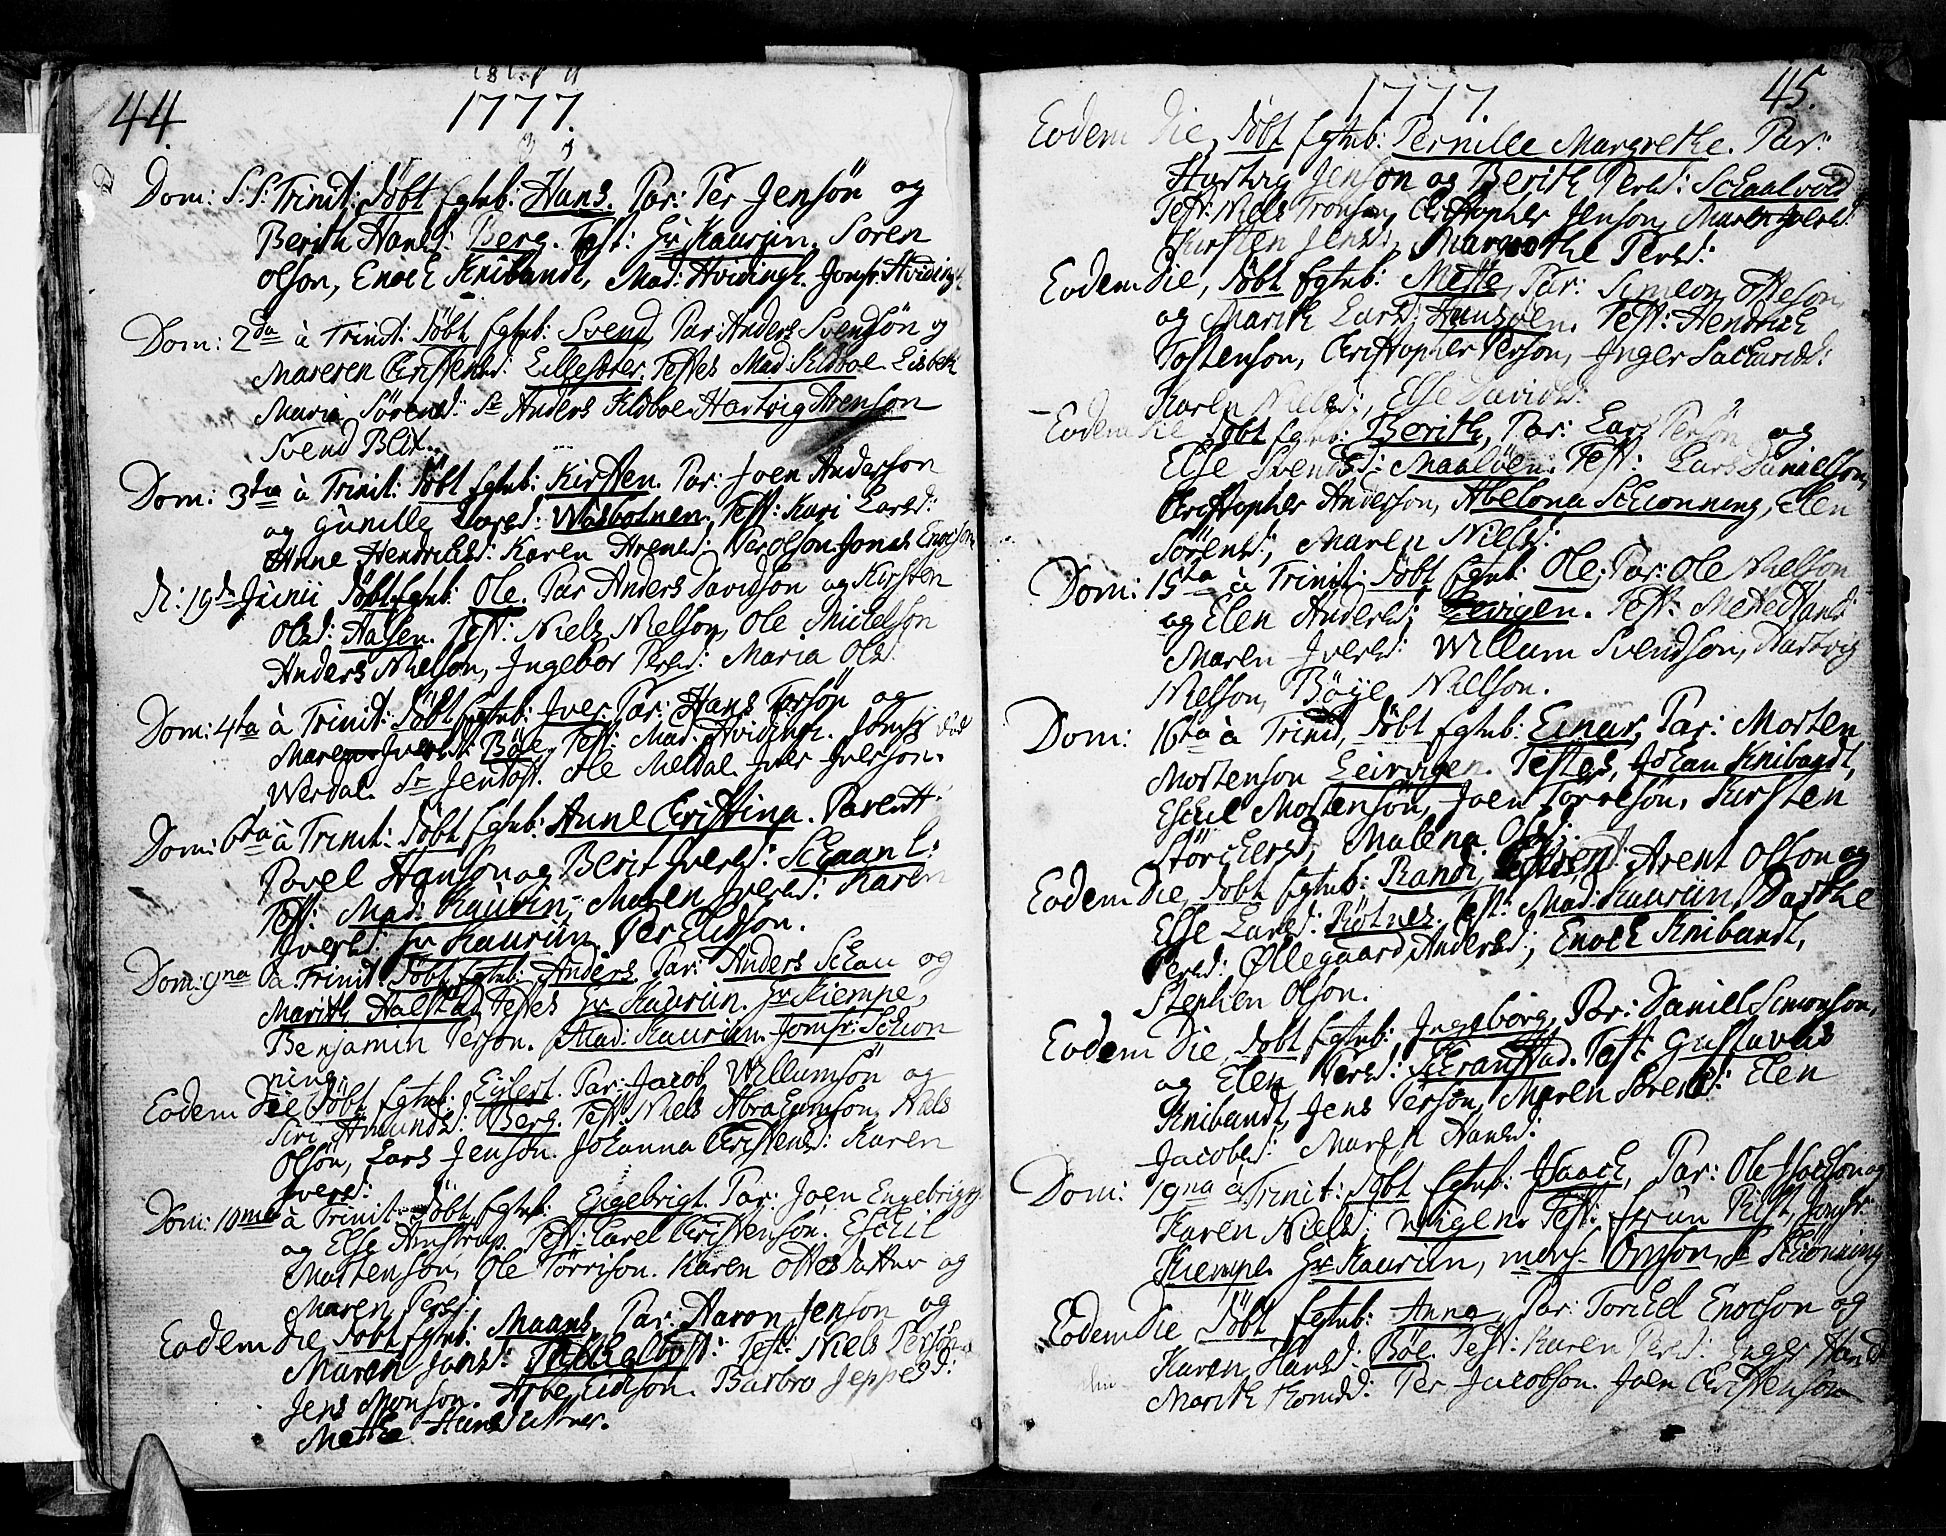 44. 1777.
Dom: S: S: Trinit: Döbt Egtub: Hans. Par: Per Jensön og
Berith Hansd: Berg. Test: Hr Kaurin. Sören
Olson, Enoch Knibandt, Mad: Hvidingh. Jomfr: Hviding
Dom: 2da à Trinit: Döbt Egtub: Svend, Par: Anders Svendsön og
Mareren Christensd: Lillesæter. Testes Mad: Kldboe Lisbeth
Maria Sörensd: Sr Anders Kldboe Hartvig Arenson
Svend Blix.
Dom: 3tia à Trinit: Döbt Egtub: Kirsten. Par: Joen Anderson
og Gunille Larsd: Wasbotnen. Test: Kari Larsd:
Anne Hendrichsd: Karen Arensd: Per Olson. Jonas Enocson
D: 19de Junii Döbt Egtub: Ole. Par Anders Davidson og Kirsten
Olsd: Aalsen. Test: Niels Nielson, Ole Michelson
Anders Nielson, Ingebor Persd: Maria Olsd:
Dom: 4ta à Trinit: Döbt Egtub: Iver Par: Hans Persön og
Maren Iversd: Böe. Test: Mad: Hvidingh. Jomfr
Werdal. Sr Jentoft. Ole Meldal. Iver Iverson.
Dom: 6ta à Trinit: Döbt Egtub: Anne Christina. Parent:
Povel Hanson og Berit Iversd: Schaanl:
Test: Mad: Kaurin, Maren Iversd: Karen
Iversd: Hr Kaurin. Per Elison.
Dom: 9na à Trinit. Döbt Egtub: Anders Par: Anders Schau og
Marith Halstad Testes Hr Kaurin. Hr Kiempe,
Benjamin Person. Mad: Kaurin. Jomfr: Schion
ning.
Eodem Die Döbt Egtub: Egilert. Par: Jacob Willumsön og
Siri Amundsd: Berg. Test: Niels Abrahamson, Niels
Olsön, Lars Jenson. Johanna Christensd: Karen
Iversd:
Dom: 10ma à Trinit: Döbt Egtub: Engebrigt. Par: Joen Engebrigts:
og Else Amstrup. Test: Carel Christenson. Eschil
Mortenson, Ole Törrison. Karen Ottesdatter og
Maren Persd:
Eodem Die Döbt Egtub: Maans, Par: Aaron Jenson og
Maren Jonsd: Test: Niels Persön
Jens Monson. Arbe Eidson. Barbro Jeppesd:
Mette Hansdatter.
1777. 45.
Eodem Die, Döbt Egtub: Pernille Margrethe. Par:
Hartvig Jenson og Berith Persd: Schaalvold
Test: Niels Tronson, Christopher Jenson, Maren Iversd:
Kirsten Jensd: Margrethe Persd:
Eodem Die, Döbt Egtub: Mette, Par: Simeon Otteson
og Marith Larsd: Hunsöen. Test: Hendrich
Tostenson, Christopher Person, Inger Sacharisd:
Karen Nielsd:, Else Davidsd:
Eodem Die Döbt Egtub: Berith, Par: Lars Persön og
Else Svendsd: Maalöen. Test: Lars Danielson,
Christopher Anderson, Abelona Schionning, Elen
Sörensd:, Maren Nielsd:
Dom: 15ta à Trinit: Döbt Egtub: Ole, Par: Ole Nielson
og Elen Andersd: Levigen. Test: Mette Hansd:
Maren Iversd: Willum Svendson, Hartvig
Nielson, Böye Nielson.
Dom: 16ta à Trinit, Döbt Egtub: Einar, Par: Morten
Mortenson Leirvigen. Testes, Johan Knibandt,
Eschil Mortensön, Joen Törresön, Kirsten
Störchersd, Malena Olsd:
Eodem Die, Döbt Egtub: Randi, Parent: Arent Olson og
Else Larsd: Rötnes. Test: Mad: Kaurin, Darthe
Persd: Øllegaard Andersd:, Enoch Knibandt,
Stephen Olson.
Eodem Die, Döbt Egtub: Ingeborg, Par: Daniel Simonson,
og Elen Persd: Schranstad. Test: Gustavus
Knibandt, Jens Persön, Maren Sörensd: Elen
Jacobsd: Maren Hansd:
Dom: 19na à Trinit: Döbt Egtub: Isaach, Par: Ole Isachson og
Karen Nielsd: Wiigen. Test: Frün Rist, Jomfr:
Kiempe. Hr Kaurin, mons. Omson, Sr Schiönning
Eodem Die Döbt Egtub: Anna, Par: Torchel Enocson og
Karen Hansd: Böe. Test: Karen Persd: Inger Hansd
Marith Tomsd: Per Jacobson. Joen Christenson